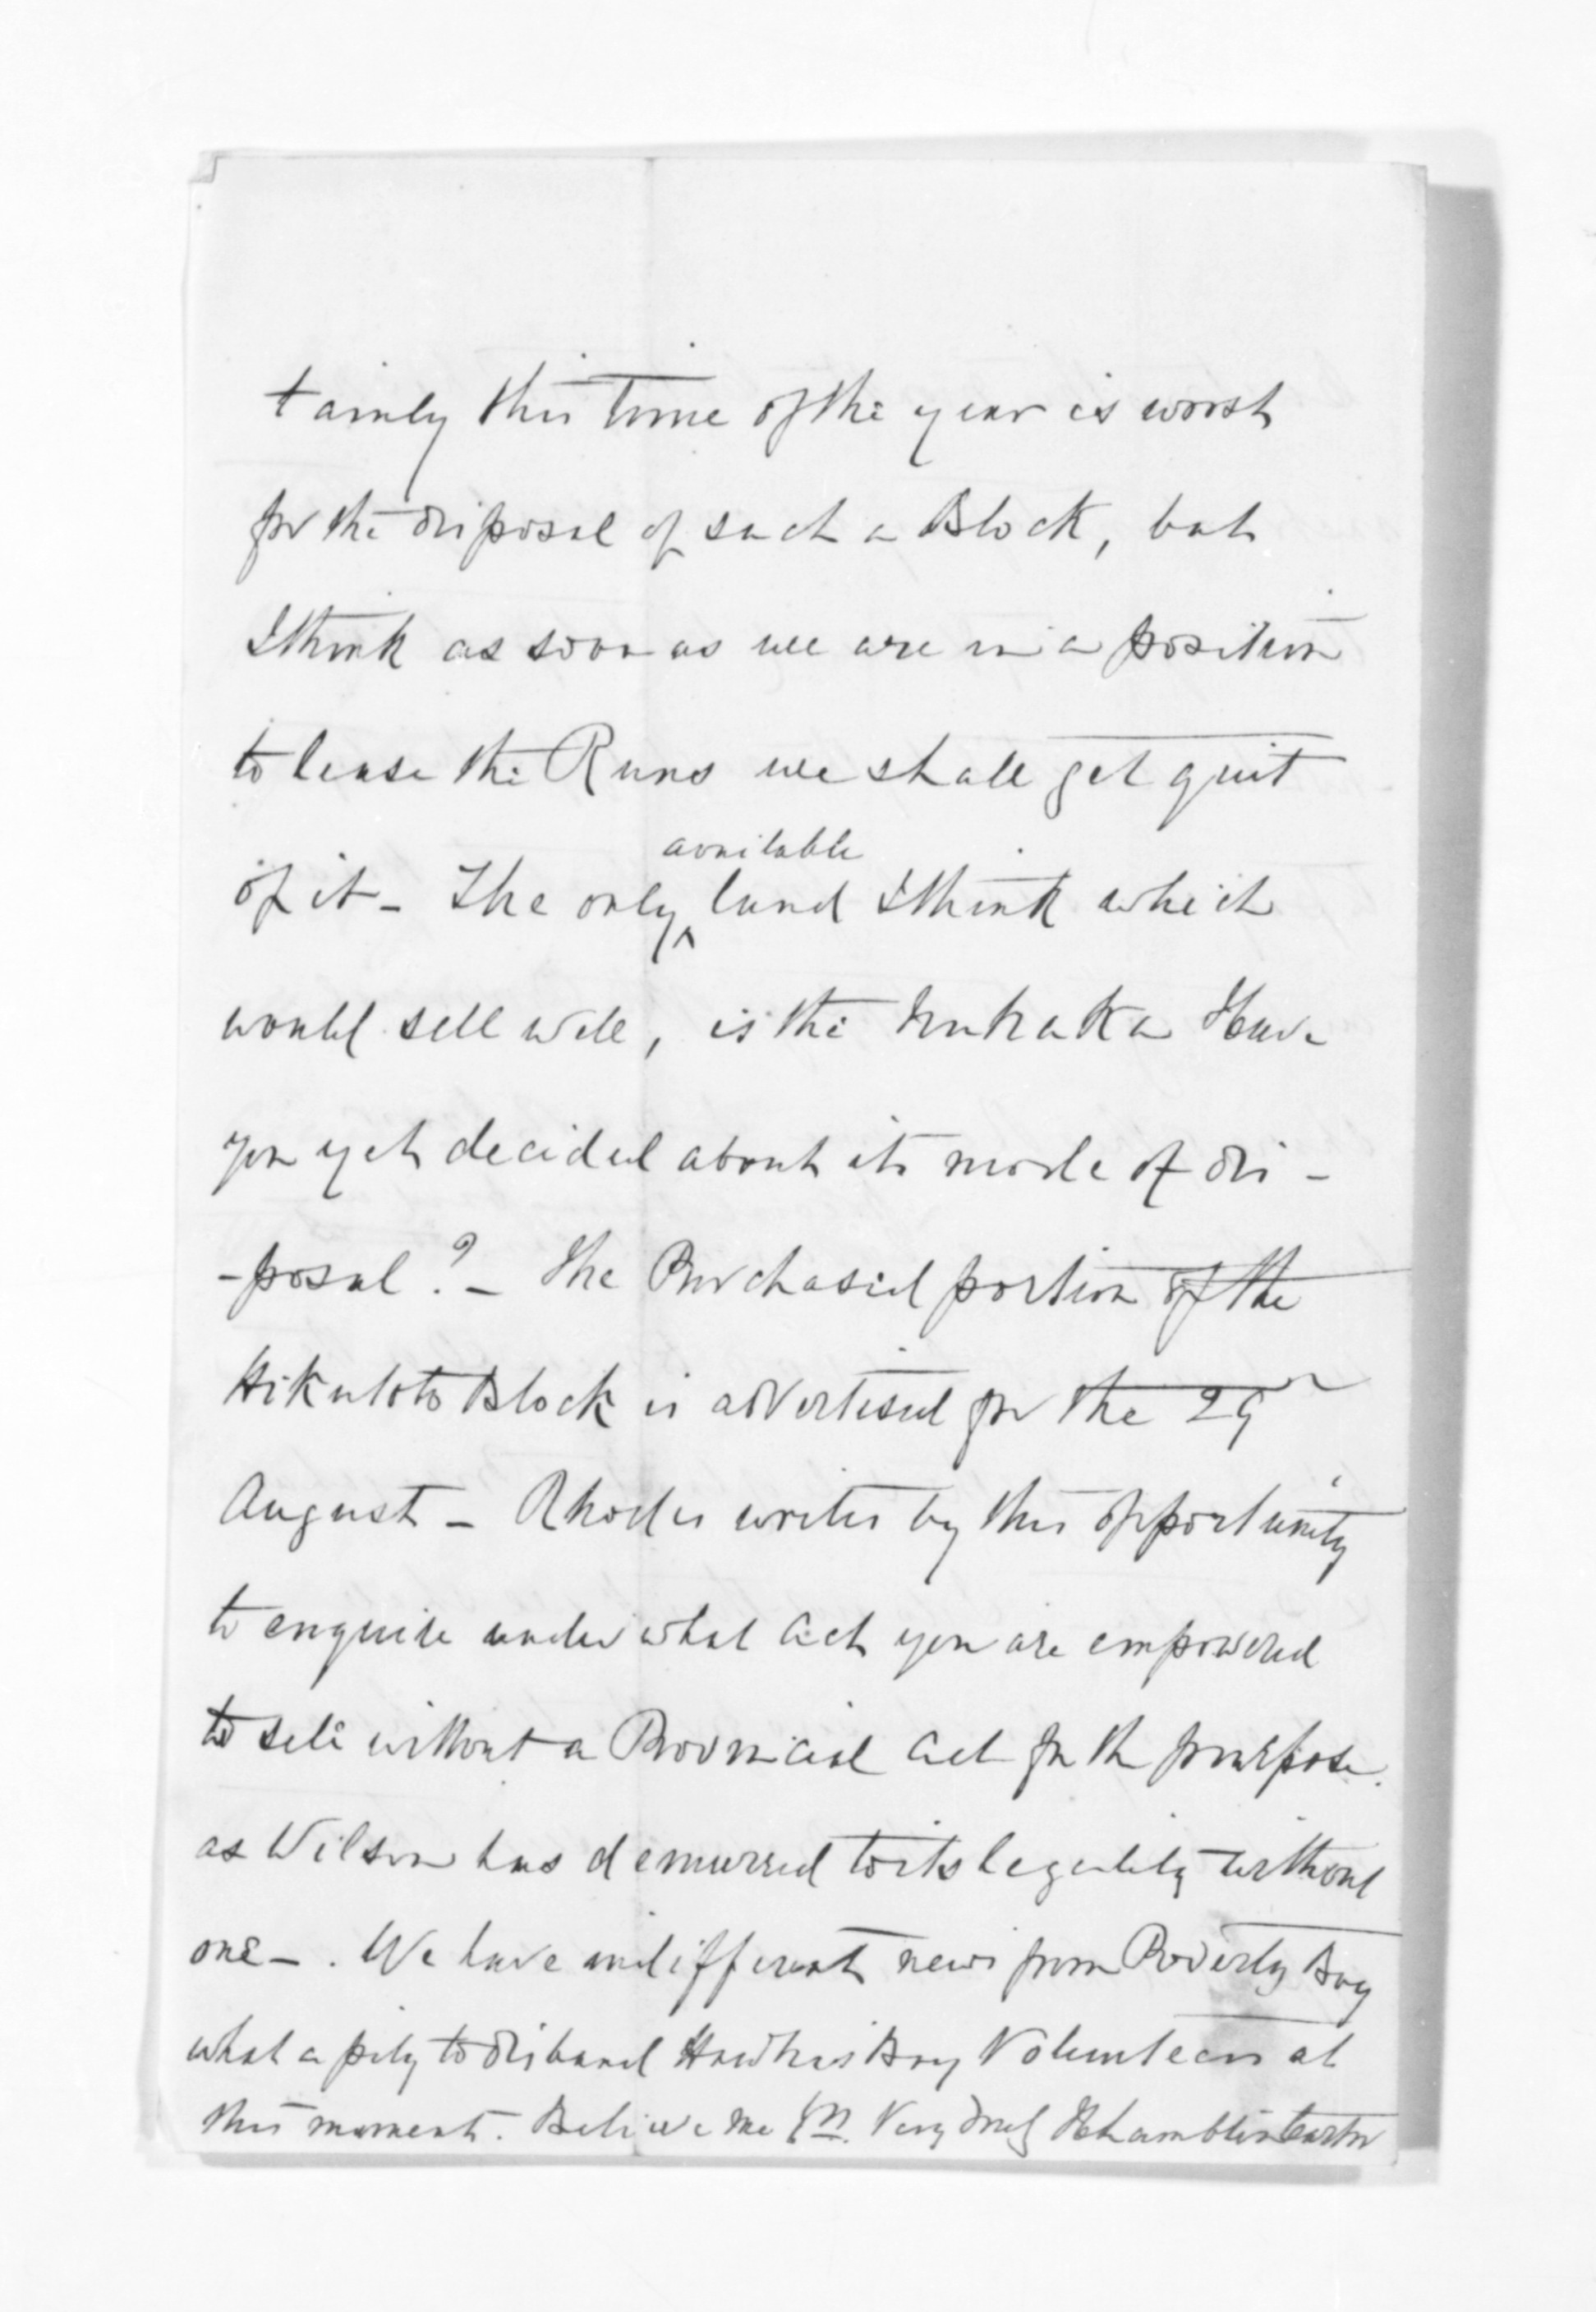 tainly this time of the year is worst
for the disposal of such a Block, but
I think as soon as we are in a position
to lease the Runs we shall get quit
of it - The only available land I think which
would sell well, is the Muhaka Have
you yet decided about its mode of dis -
- posal ? - The Purchased portion of the
Hikutoto Block is advertised for the 29
August - Rhodes writes by this opportunity
to enquire under what Act you are empowered
to sell without a Provincial Act for the purpose.
as Wilson has demurred to its legality without
one - . We have indifferent news from Poverty Bay
what a pity to disband Hawkes Bay Volunteers at
this moment. Believe me Yrs. Very truly